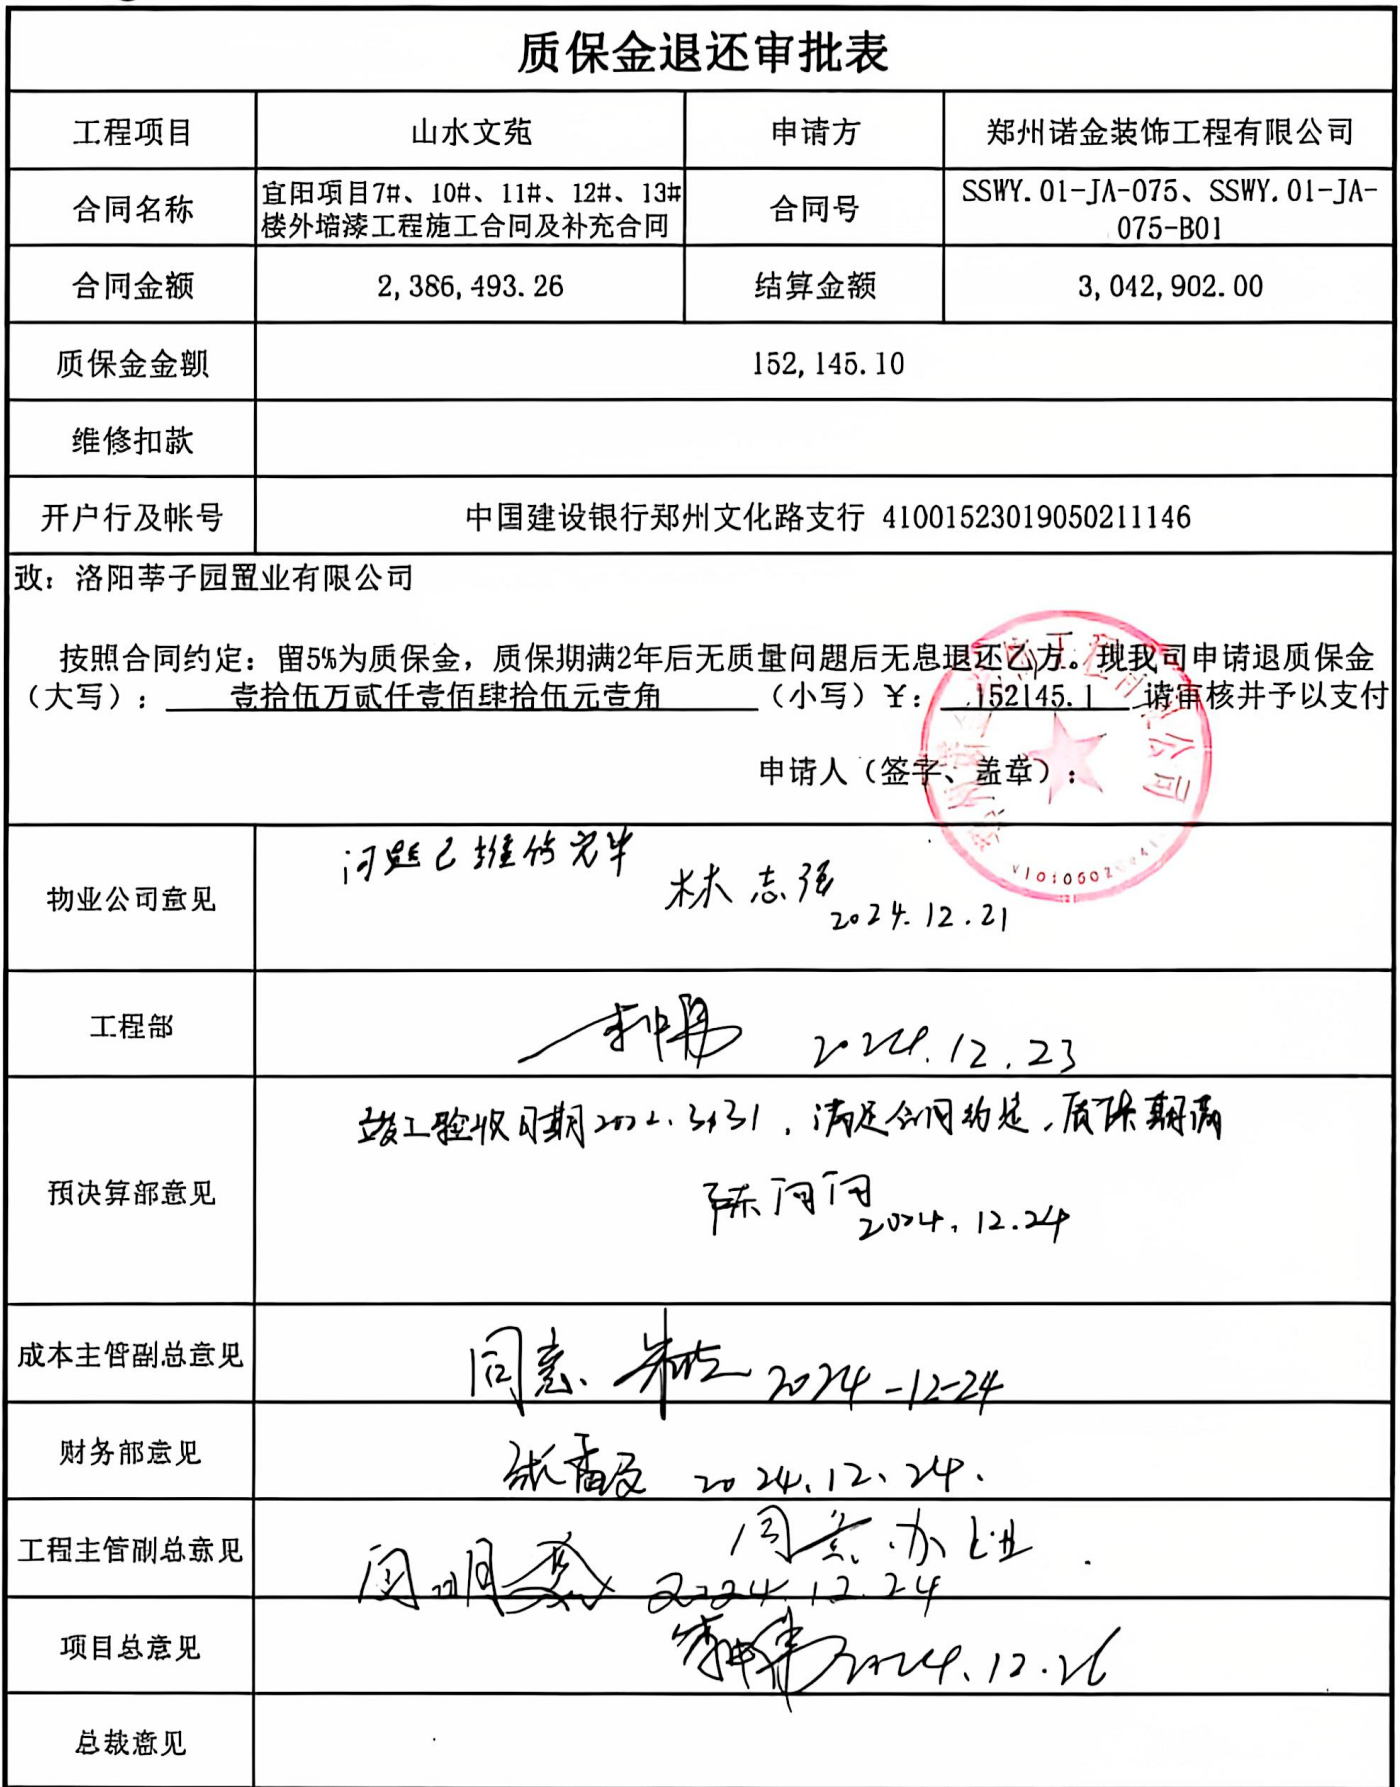 质保金退还审批表
工程项目 山水文苑 申请方 郑州诺金装饰工程有限公司
合同名称 宜阳项目7#、10#、11#、12#、13#
楼外墙漆工程施工合同及补充合同 合同号 SSWY.01-JA-075、SSWY.01-JA-
075-B01
合同金额 2,386,493.26 结算金额 3,042,902.00
质保金金额 152,145.10
维修扣款
开户行及帐号 中国建设银行郑州文化路支行 41001523019050211146
致：洛阳莘子园置业有限公司
按照合同约定：留5%为质保金，质保期满2年后无质量问题后无息退还乙方。现我司申请退质保金
（大写）：壹拾伍万贰仟壹佰肆拾伍元壹角（小写）¥：152145.1 请审核并予以支付
申请人（签字、盖章）：
物业公司意见 问题已维修完毕
林志强
2024.12.21
工程部 2024.12.23
预决算部意见 竣工验收日期2022.3.31，满足合同约定，质保期满
陈闩闩
2024.12.24
成本主管副总意见 同意 2024-12-24
财务部意见 2024.12.24.
工程主管副总意见 同意办理
2024.12.24
项目总意见 2024.12.26
总裁意见